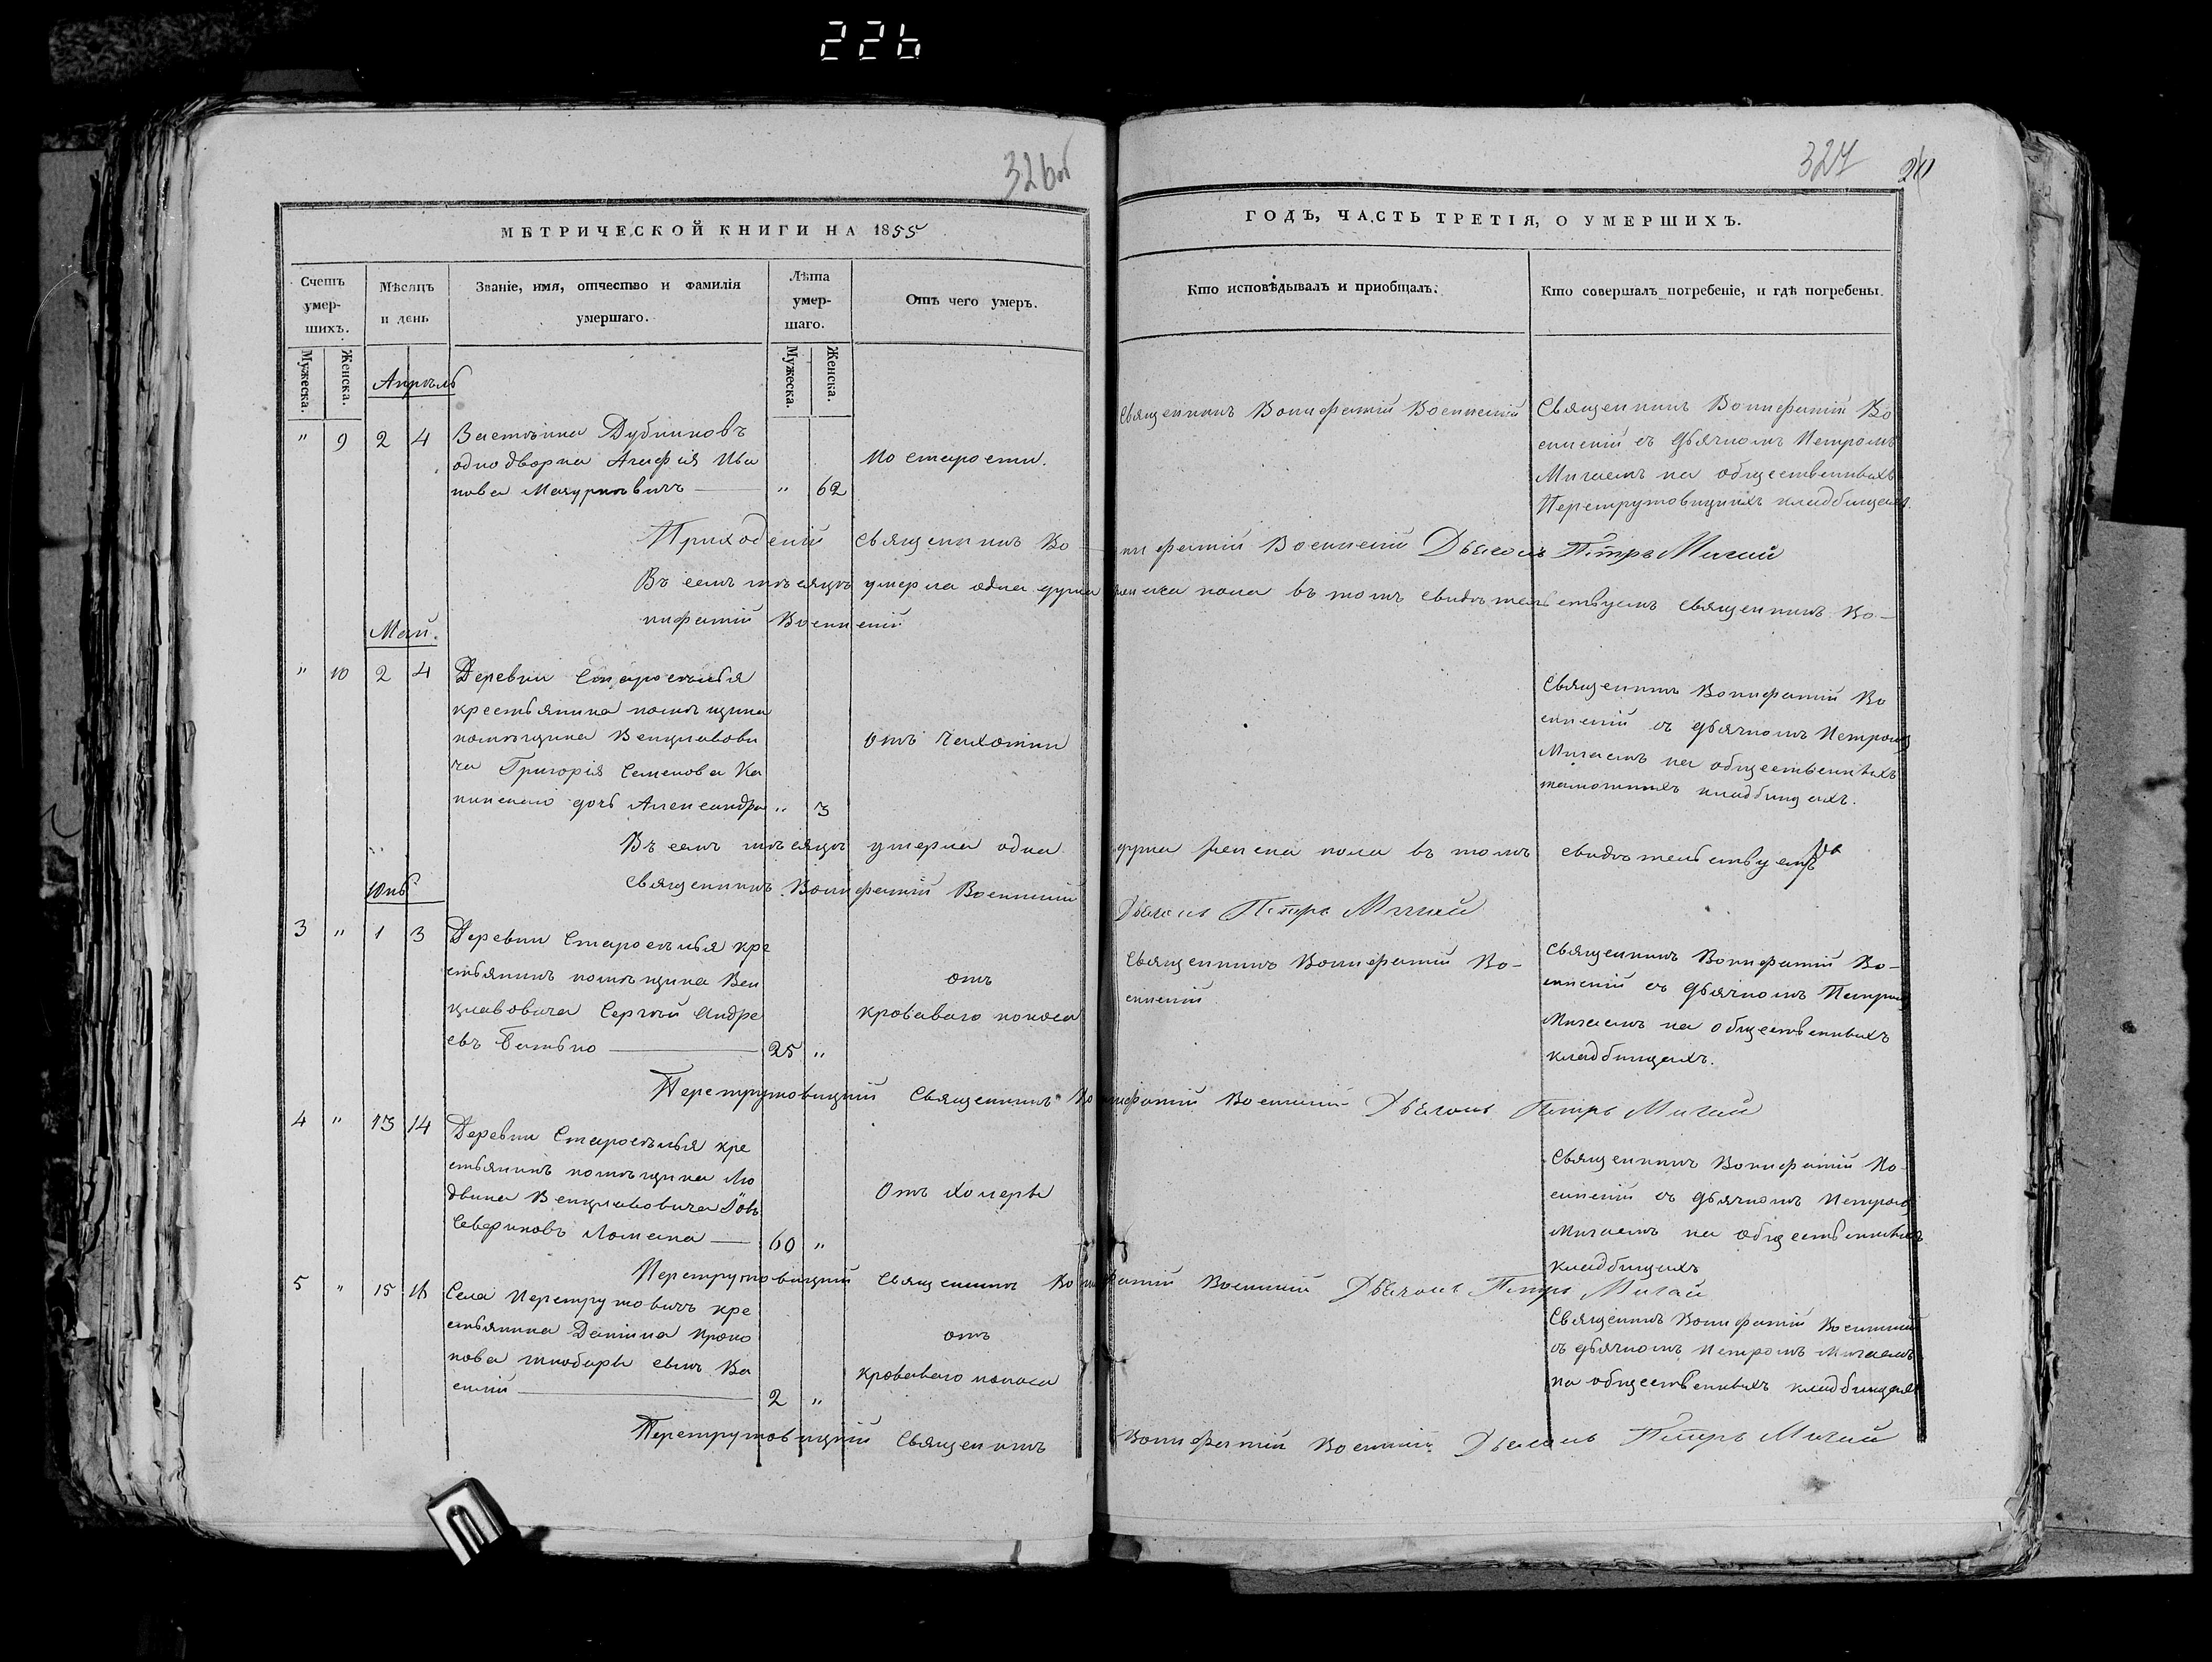 226
326об
327
МЕТРИЧЕСКОЙ КНИГИ НА 1855
ГОДЪ, ЧАСТЬ ТРЕТІЯ, О УМЕРШИХЪ.
Счетъ умер-шихъ.
Мѣсяцъ и день
Званіе, имя, отчество и фамилія умершаго.
Лѣта умер-шаго.
Отъ чего умеръ.
Кто исповѣдывалъ и приобщалъ.
Кто совершалъ погребеніе, и гдѣ погребены.
Мужеска. Женска.
Мужеска. Женска.
Апрѣль
" 9 2 4
Застѣнка Дубниковъ
однодворка Агафія Ива
нова
" 62
По старости.
Священникъ Вонифатій Военскій
Священникъ Вонифатій Во
енскій съ дьячкомъ Петромъ
Мигаемъ на общественныхъ
Перетрутовицкихъ кладбищахъ.
Приходскій Священникъ Вонифатій Военскій Дьячокъ Петръ Мигай
Въ семъ мѣсяцѣ умерла одна душа женска пола въ томъ свидѣтельствуемъ Священникъ Во-
нифатій Военскій
Май.
" 10 2 4
Деревни Староселья
крестьянина помѣщика
помѣщика Венцлавови
ча Григорія Семенова Ка
дочь Александра
" 3
отъ чахотки
Священникъ Вонифатій Во
енскій съ дьячкомъ Петромъ
Мигаемъ на общественныхъ
тамошнихъ кладбищахъ.
Въ семъ мѣсяцѣ умерла одна душа женска пола въ томъ свидѣтельствуемъ
Священникъ Вонифатій Военскій
Дьячокъ Петръ Мигай
Юнь
3 " 1 3
Деревни Староселья кре
стьянинъ помѣщика Вен
цлавовича Сергѣй Андре
евъ Батько
25 "
отъ
кроваваго поноса
Священникъ Вонифатій Во-
енскій
Священникъ Вонифатій Во-
енскій съ дьячкомъ Петромъ
Мигаемъ на общественныхъ
кладбищахъ.
Перетрутовицкій Священникъ Вонифатій Военскій Дьячокъ Петръ Мигай
4 " 13 14
Деревни Староселья кре
стьянинъ помѣщика Лю
двика Венцлавовича Іовъ
Севериновъ
60 "
Отъ холеры
Священникъ Вонифатій Во-
енскій съ дьячкомъ Петромъ
Мигаемъ на общественныхъ
кладбищахъ
Перетрутовицкій Священникъ Вонифатій Военскій Дьячокъ Петръ Мигай
5 " 15 16
Села Перетрутовичъ кре
стьянина Даніила Проко
пова сынъ Ва
силій
2 "
отъ
кроваваго поноса
Священникъ Вонифатій Военскій
съ дьячкомъ Петромъ Мигаемъ
на общественныхъ кладбищахъ
Перетрутовицкій Священникъ Вонифатій Военскій Дьячокъ Петръ Мигай